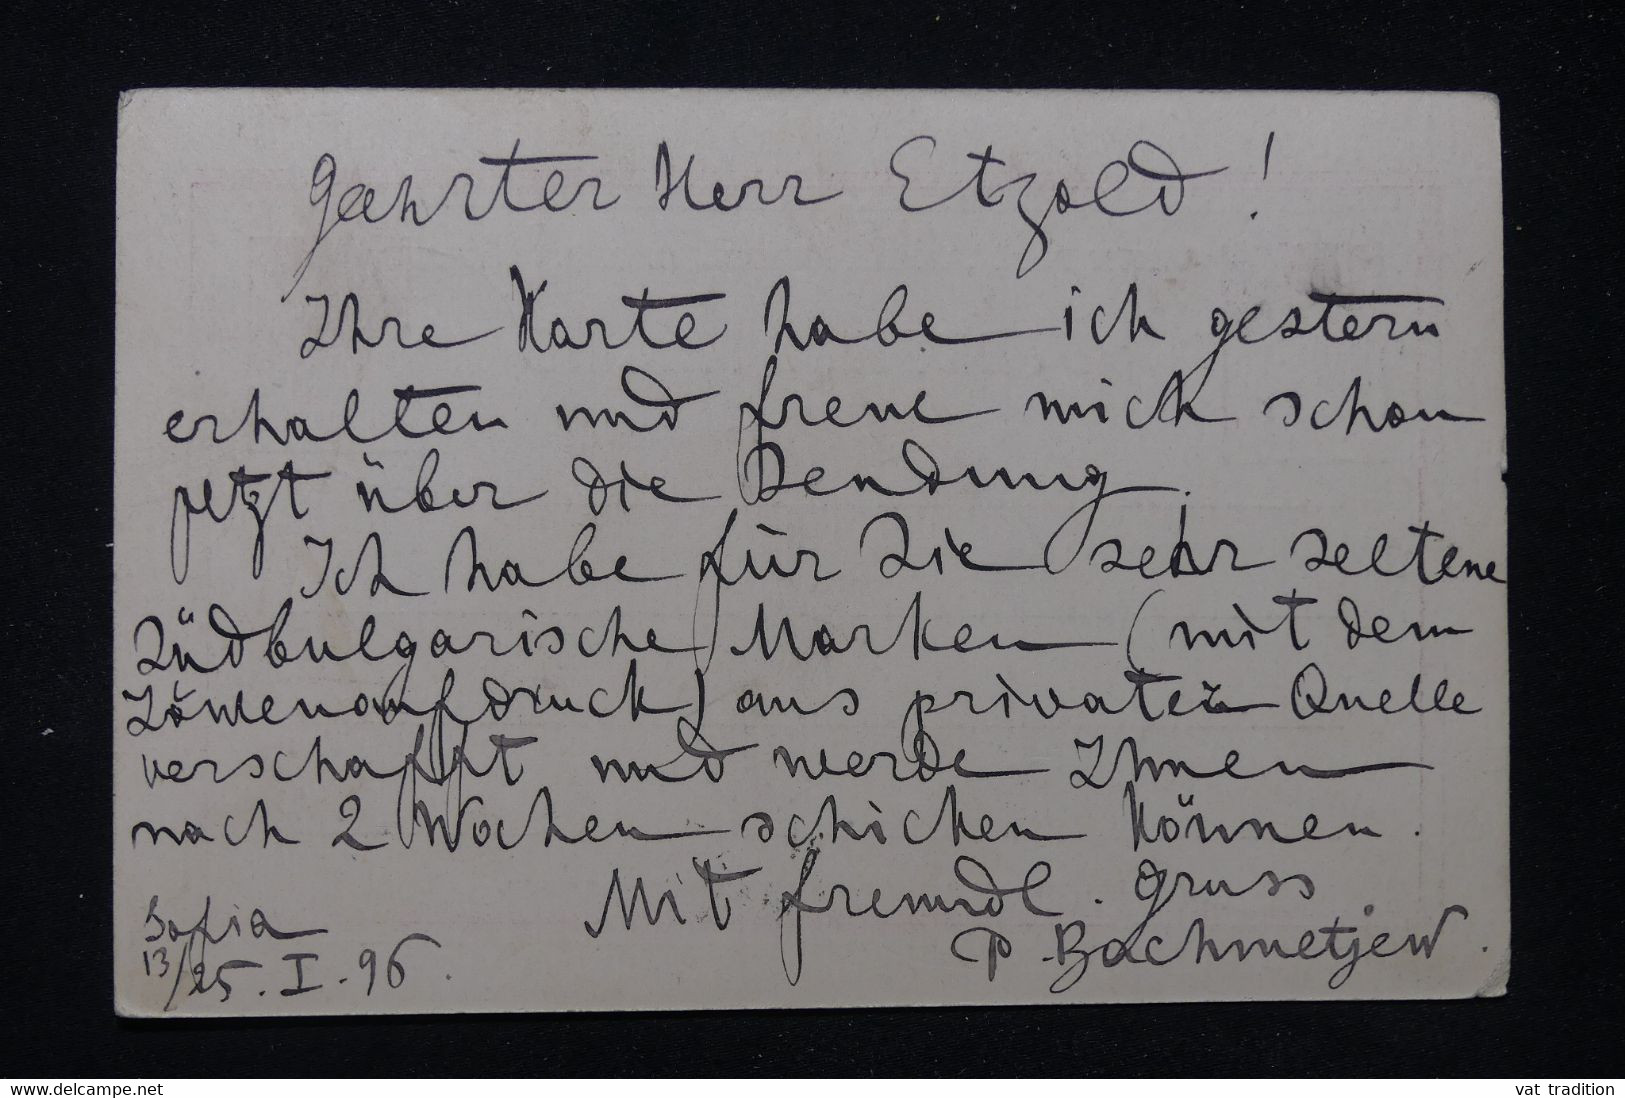 Geehrter Herr Etzold!
Ihre Karte habe ich gestern
erhalten und freue mich schon
jetzt über die Sendung.
Ich habe für Sie sehr seltene
Südbulgarische Marken (mit dem
Löwenaufdruck) aus privater Quelle
verschafft und werde Ihnen
nach 2 Wochen schicken können.
Mit freundl. Gruss
P. Bachmetjew.
Sofia
13/25. I. 96.
www.delcampe.net
vat_tradition